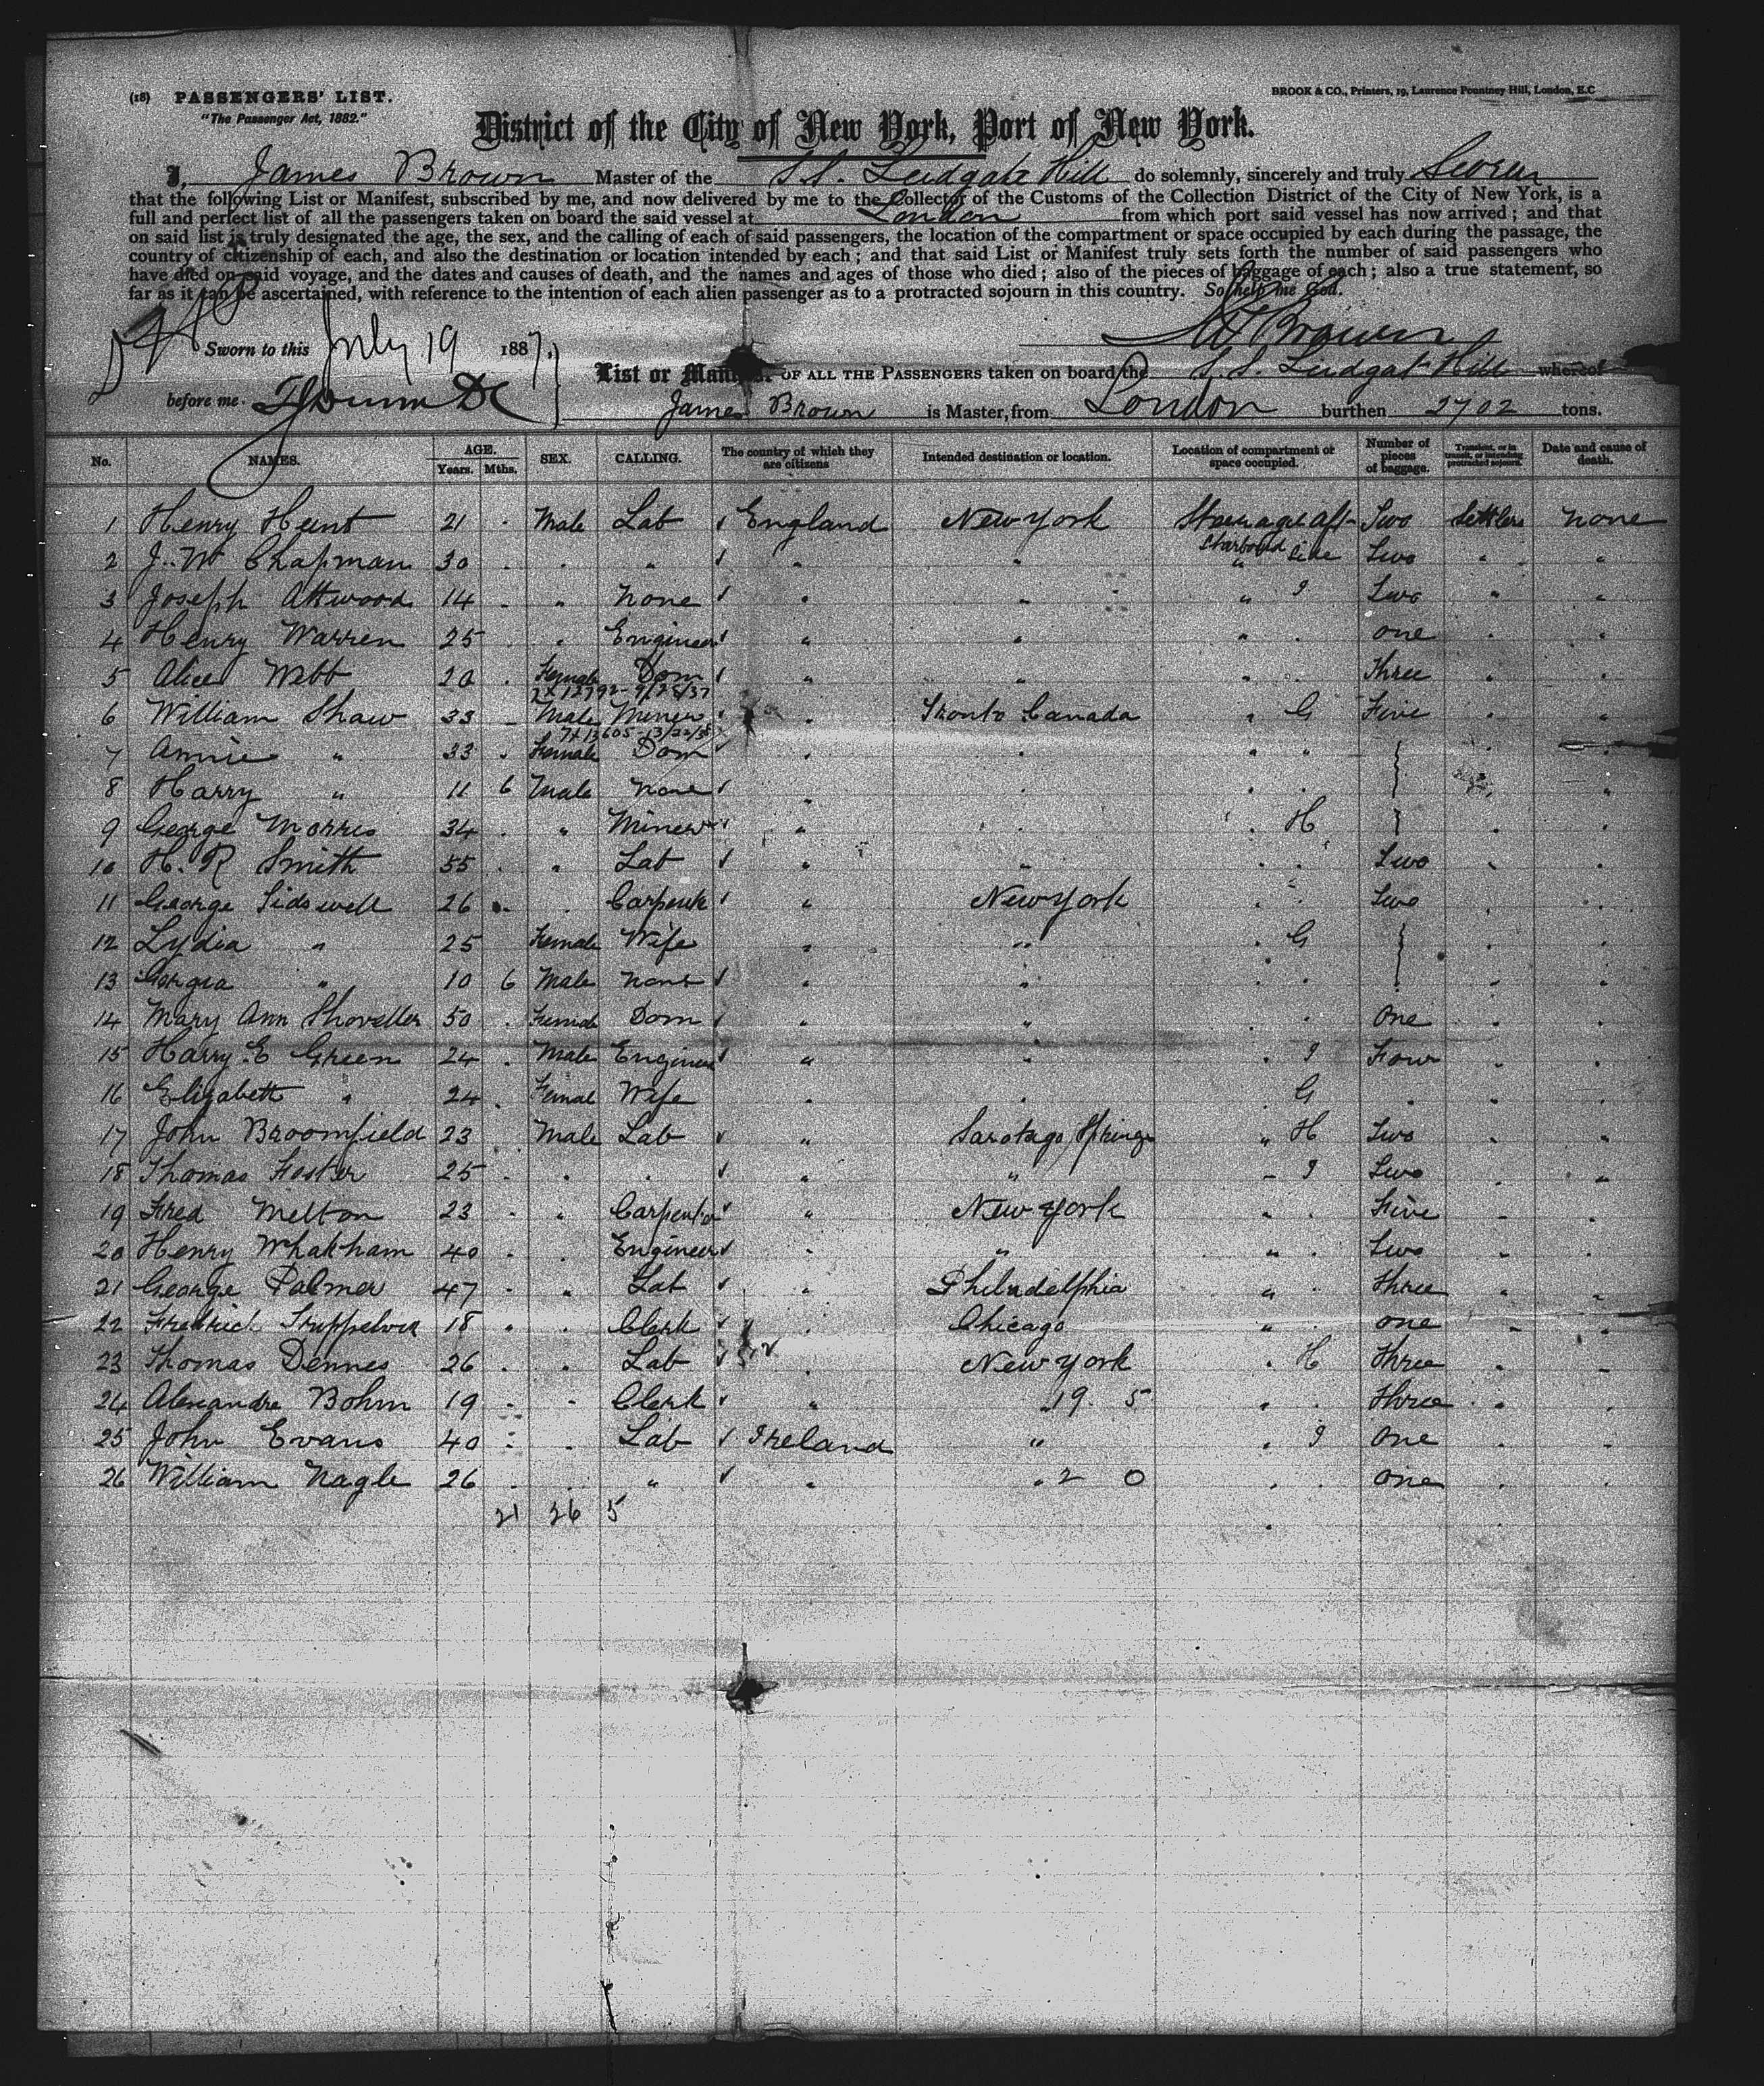 (18) PASSENGERS' LIST.
"The Passenger Act, 1882."
BROOK & CO., Printers, 19, Laurence Pountney Hill, London, E.C
District of the City of New York, Port of New York.
I, James Brown Master of the S.S. Ludgate Hill do solemnly, sincerely and truly Swear
that the following List or Manifest, subscribed by me, and now delivered by me to the Collector of the Customs of the Collection District of the City of New York, is a
full and perfect list of all the passengers taken on board the said vessel at London from which port said vessel has now arrived; and that
on said list is truly designated the age, the sex, and the calling of each of said passengers, the location of the compartment or space occupied by each during the passage, the
country of citizenship of each, and also the destination or location intended by each; and that said List or Manifest truly sets forth the number of said passengers who
have died on said voyage, and the dates and causes of death, and the names and ages of those who died; also of the pieces of baggage of each; also a true statement, so
far as it can be ascertained, with reference to the intention of each alien passenger as to a protracted sojourn in this country. So help me God.
Brown
Sworn to this July 19 1887.
List or Manifest OF ALL THE PASSENGERS taken on board the S.S. Ludgate Hill whereof
before me
James Brown is Master, from London burthen 2702 tons.
No. NAMES. AGE. Years. Mths. SEX. CALLING. The country of which they are citizens Intended destination or location. Location of compartment or space occupied. Number of pieces of baggage. Transient, or in transit, or intending protracted sojourn. Date and cause of death.
1 Henry Hunt 21 . Male Lab England New York Steerage aft Starboard Side Two Settlers None
2 J. W. Chapman 30 . . " " " " Two " "
3 Joseph Attwood 14 . " None " " " I Two " "
4 Henry Warren 25 . Engineer " " " . one . .
5 Alice Webb 20 . Female Dom " " . . Three . .
7x12792-9/25/37
6 William Shaw 33 - Male Miner . Tronto Canada " G Five . .
7 Annie " 33 . Female Dom . . " " . .
8 Harry " 11 6 Male None " . . . . "
9 George Morris 34 . " Miner " . . H . .
10 H. R Smith 55 . " Lab " " . . Two . .
11 George Sidswell 26 . . Carpentr " New York . . Two . .
12 Lydia " 25 Female Wife " " . G . .
13 Gorgia " 10 6 Male None " " . . . .
14 Mary Ann Shoveller 50 . Female Dom " " . . One . .
15 Harry E Green 24 . Male Engineer " " . I Four . .
16 Elizabeth " 24 . Female Wife . . G . . .
17 John Broomfield 23 . Male Lab " Saratago Springs " H Two . "
18 Thomas Foster 25 . . . " " - I Two . "
19 Fred Melton 23 . " Carpenter " New York " . Five - .
20 Henry Whakham 40 . . Engineer . " " . Two " .
21 George Palmer 47 . " Lab . Philadelphia " . Three . "
22 18 . . Clerk . Chicago " . one - .
23 Thomas Dennes 26 . " Lab . New York . H Three . -
24 Alexandre Bohm 19 . - Clerk " "19. 5 . . Three . .
25 John Evans 40 . . Lab Ireland " . I One . .
26 William Nagle 26 . . " . "2 0 . . One . .
21 26 5